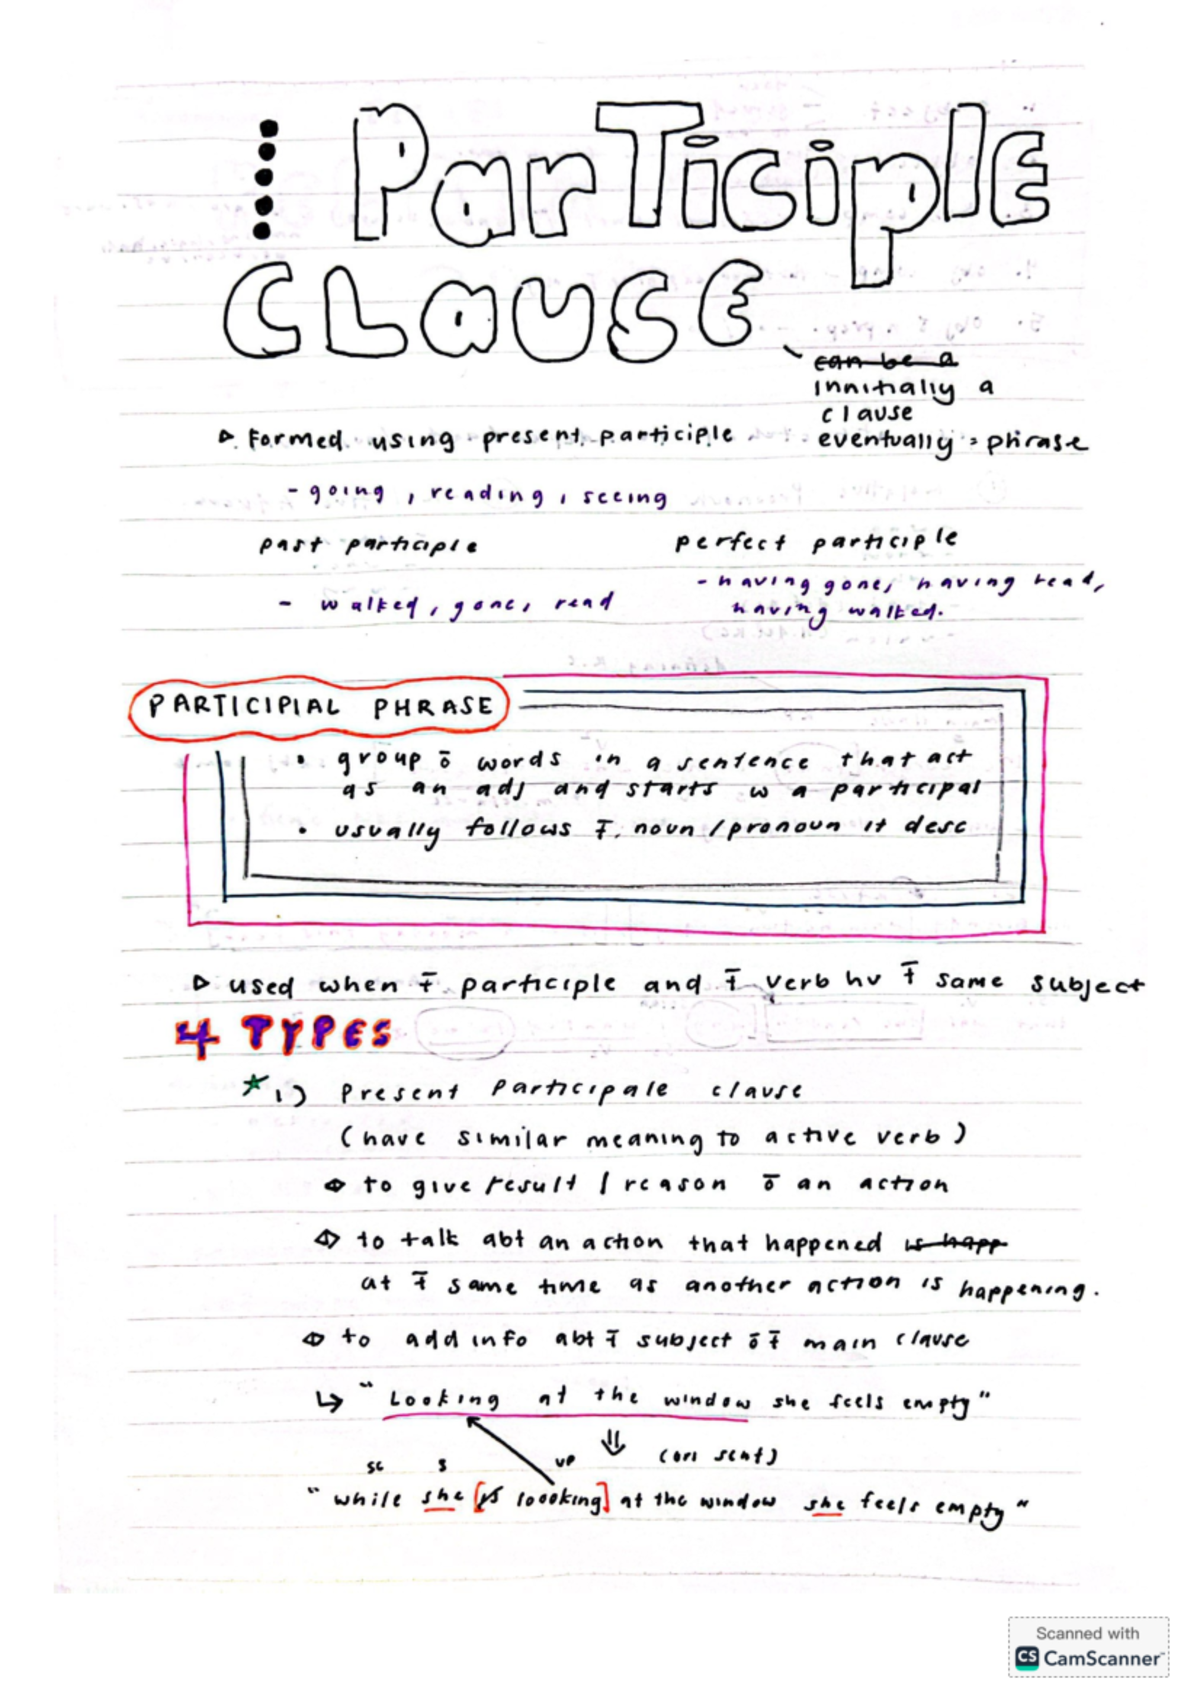 ParTiciplE
CLaUSE
can be a
innitially a
clause
▷ Formed using present participle
eventually = phrase
- going, reading, seeing
past participle
perfect participle
- having gone, having read,
- walked, gone, read
having walked.
PARTICIPIAL PHRASE
• group ō words in a sentence that act
as an adj and starts w a participal
• usually follows T̄. noun / pronoun it desc
▷ used when T̄ participle and T̄ verb hv T̄ same subject
4 TYPES
★ 1) Present Participale clause
(have similar meaning to active verb)
◇ to give result / reason ō an action
◇ to talk abt an action that happened is happ
at T̄ same time as another action is happening.
◇ to add info abt T̄ subject ō T̄ main clause
↳ "Looking at the window she feels empty"
sc s vp ⇓ (ori sent)
"while she [is loooking] at the window she feels empty"
Scanned with
CS CamScanner